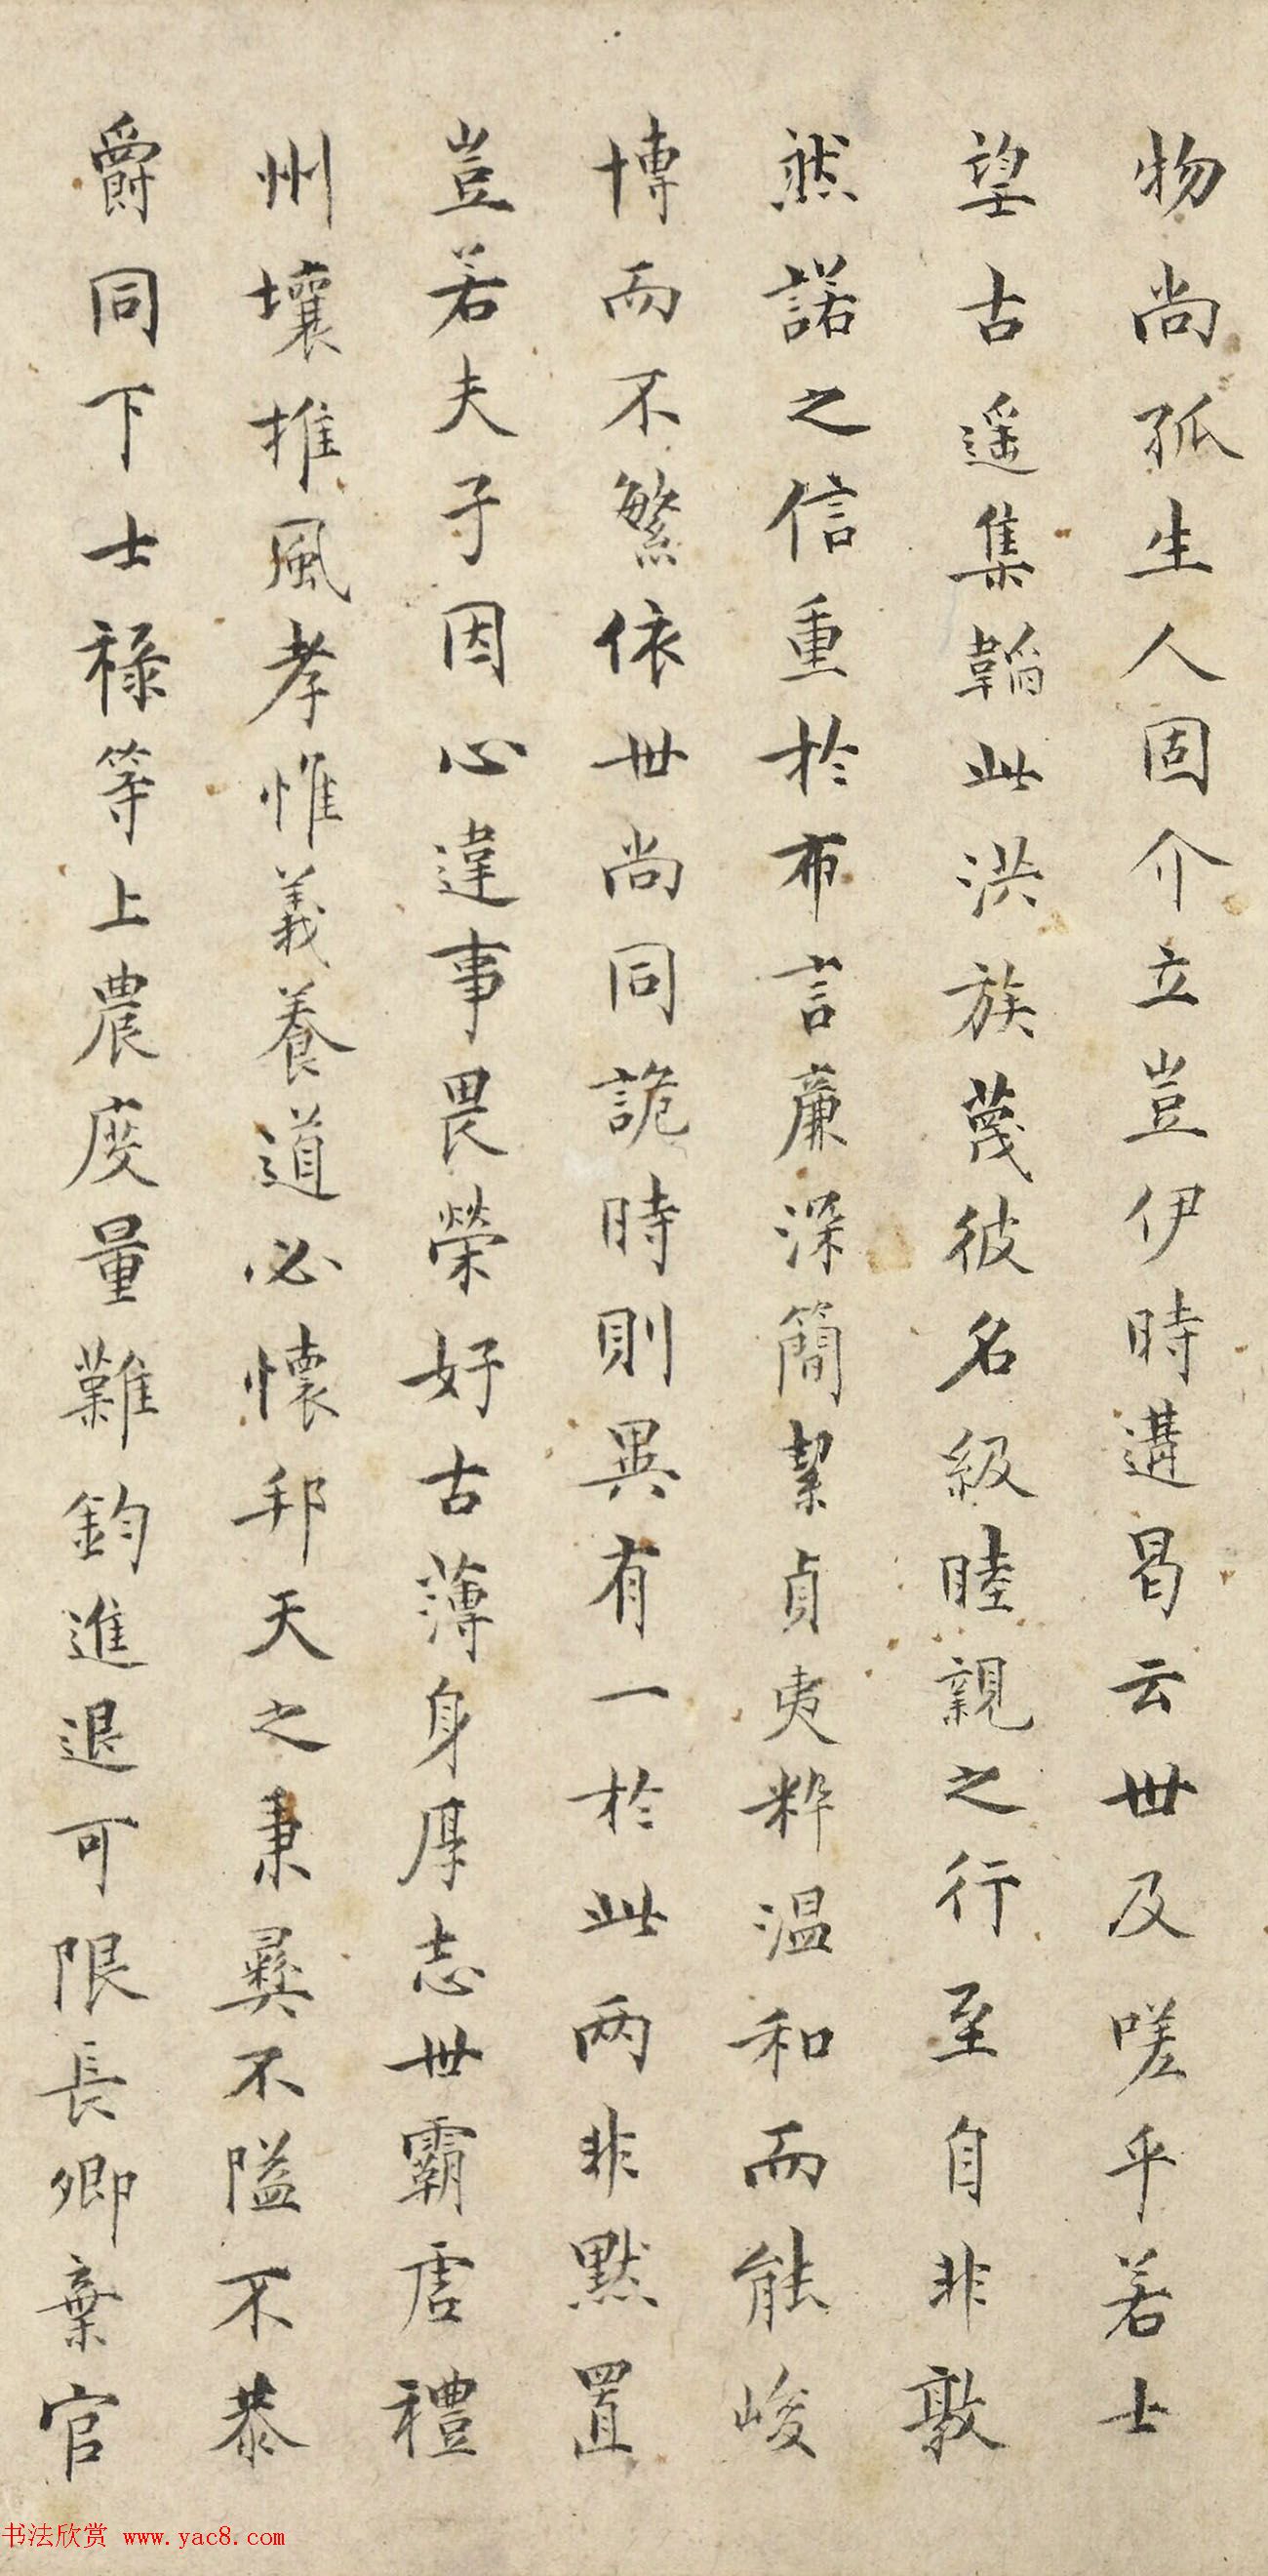 物尚孤生人固介立豈伊時遘曷云世及嗟乎若士
望古遥集韜此洪族蔑彼名級睦親之行至自非敦
然諾之信重於布言廉深簡絜貞夷粹温和而能峻
博而不繁依世尚同詭時則異有一於此两非默置
豈若夫子因心違事畏榮好古薄身厚志世霸虗禮
州壤推風孝惟義養道必懷邦天之秉彝不隘不恭
爵同下士禄等上農度量難鈞進退可限長卿棄官
书法欣赏 www.yac8.com